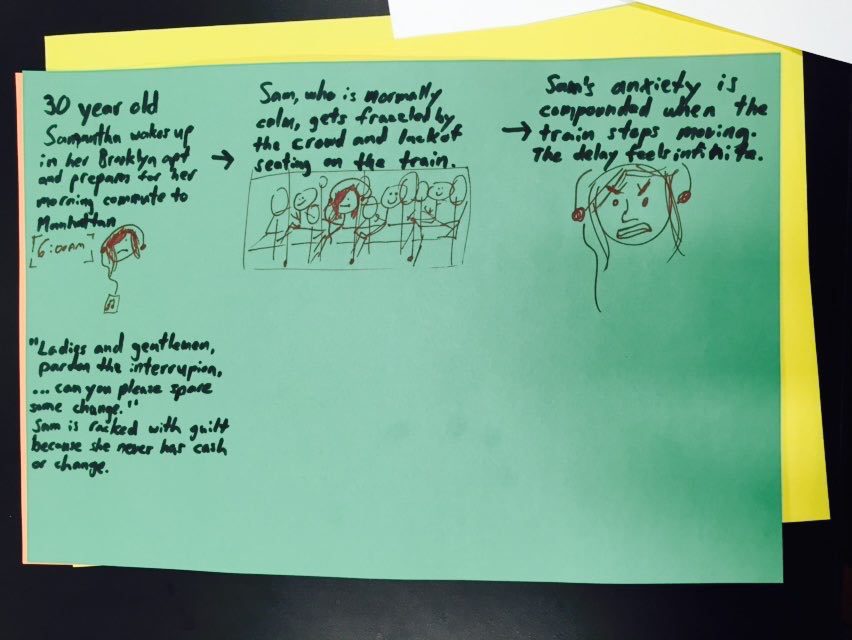 30 year old
Samantha wakes up
in her Brooklyn apt
and prepares for her
morning commute to
Manhattan
6:00AM
Sam, who is normally
calm, gets frazzled by
the crowd and lack of
seating on the train.
Sam's anxiety is
compounded when the
train stops moving.
The delay feels infinite.
"Ladies and gentlemen,
pardon the interrupion,
... can you please spare
some change."
Sam is racked with guilt
because she never has cash
or change.